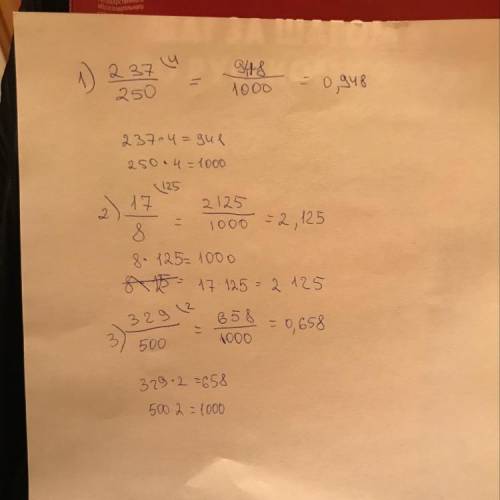 1) 237/250 \4 = 948/1000 = 0,948
237·4=948
250·4=1000
2) 17/8 \125 = 2125/1000 = 2,125
8·125=1000
17 125= 2 125
3) 329/500 \2 = 658/1000 = 0,658
329·2=658
500 2=1000